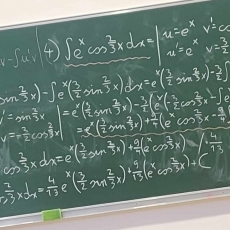 v-∫u'v 4) ∫e^x cos 2/3 x dx = | u=e^x v'=co
u'=e^x v=
sin 2/3 x) - ∫e^x(3/2 sin 2/3 x)dx = e^x(3/2 sin 2/3 x) - 3/2 ∫
'=sin 2/3 x | = e^x(3/2 sin 2/3 x) - 3/2 (e^x(-3/2 cos 2/3 x)
v=-3/2 cos 2/3 x | = e^x(3/2 sin 2/3 x) + 9/4 (e^x cos 2/3 x) - 9/4
cos 2/3 x dx = e^x(3/2 sin 2/3 x) + 9/4 (e^x cos 2/3 x) + C /· 4/13
cos 2/3 x dx = 4/13 e^x (3/2 sin 2/3 x) + 9/13 (e^x cos 2/3 x) + C